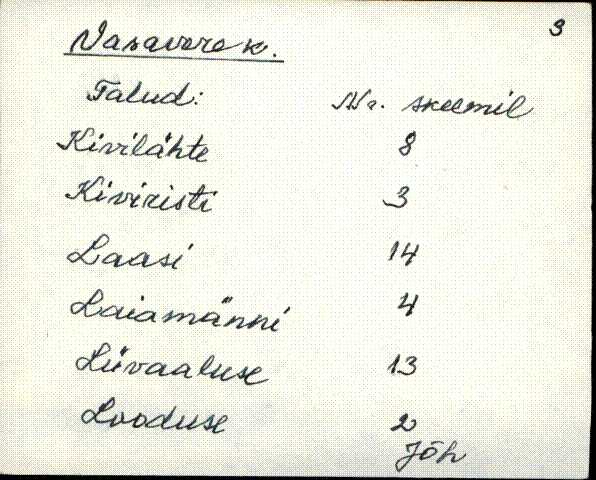 3
Vasavere k.
Talud: Nr. skeemil
Kivilähte 8
Kiviristi 3
Laasi 14
Laiamänni 4
Liivaaluse 13
Looduse 2
Jõh